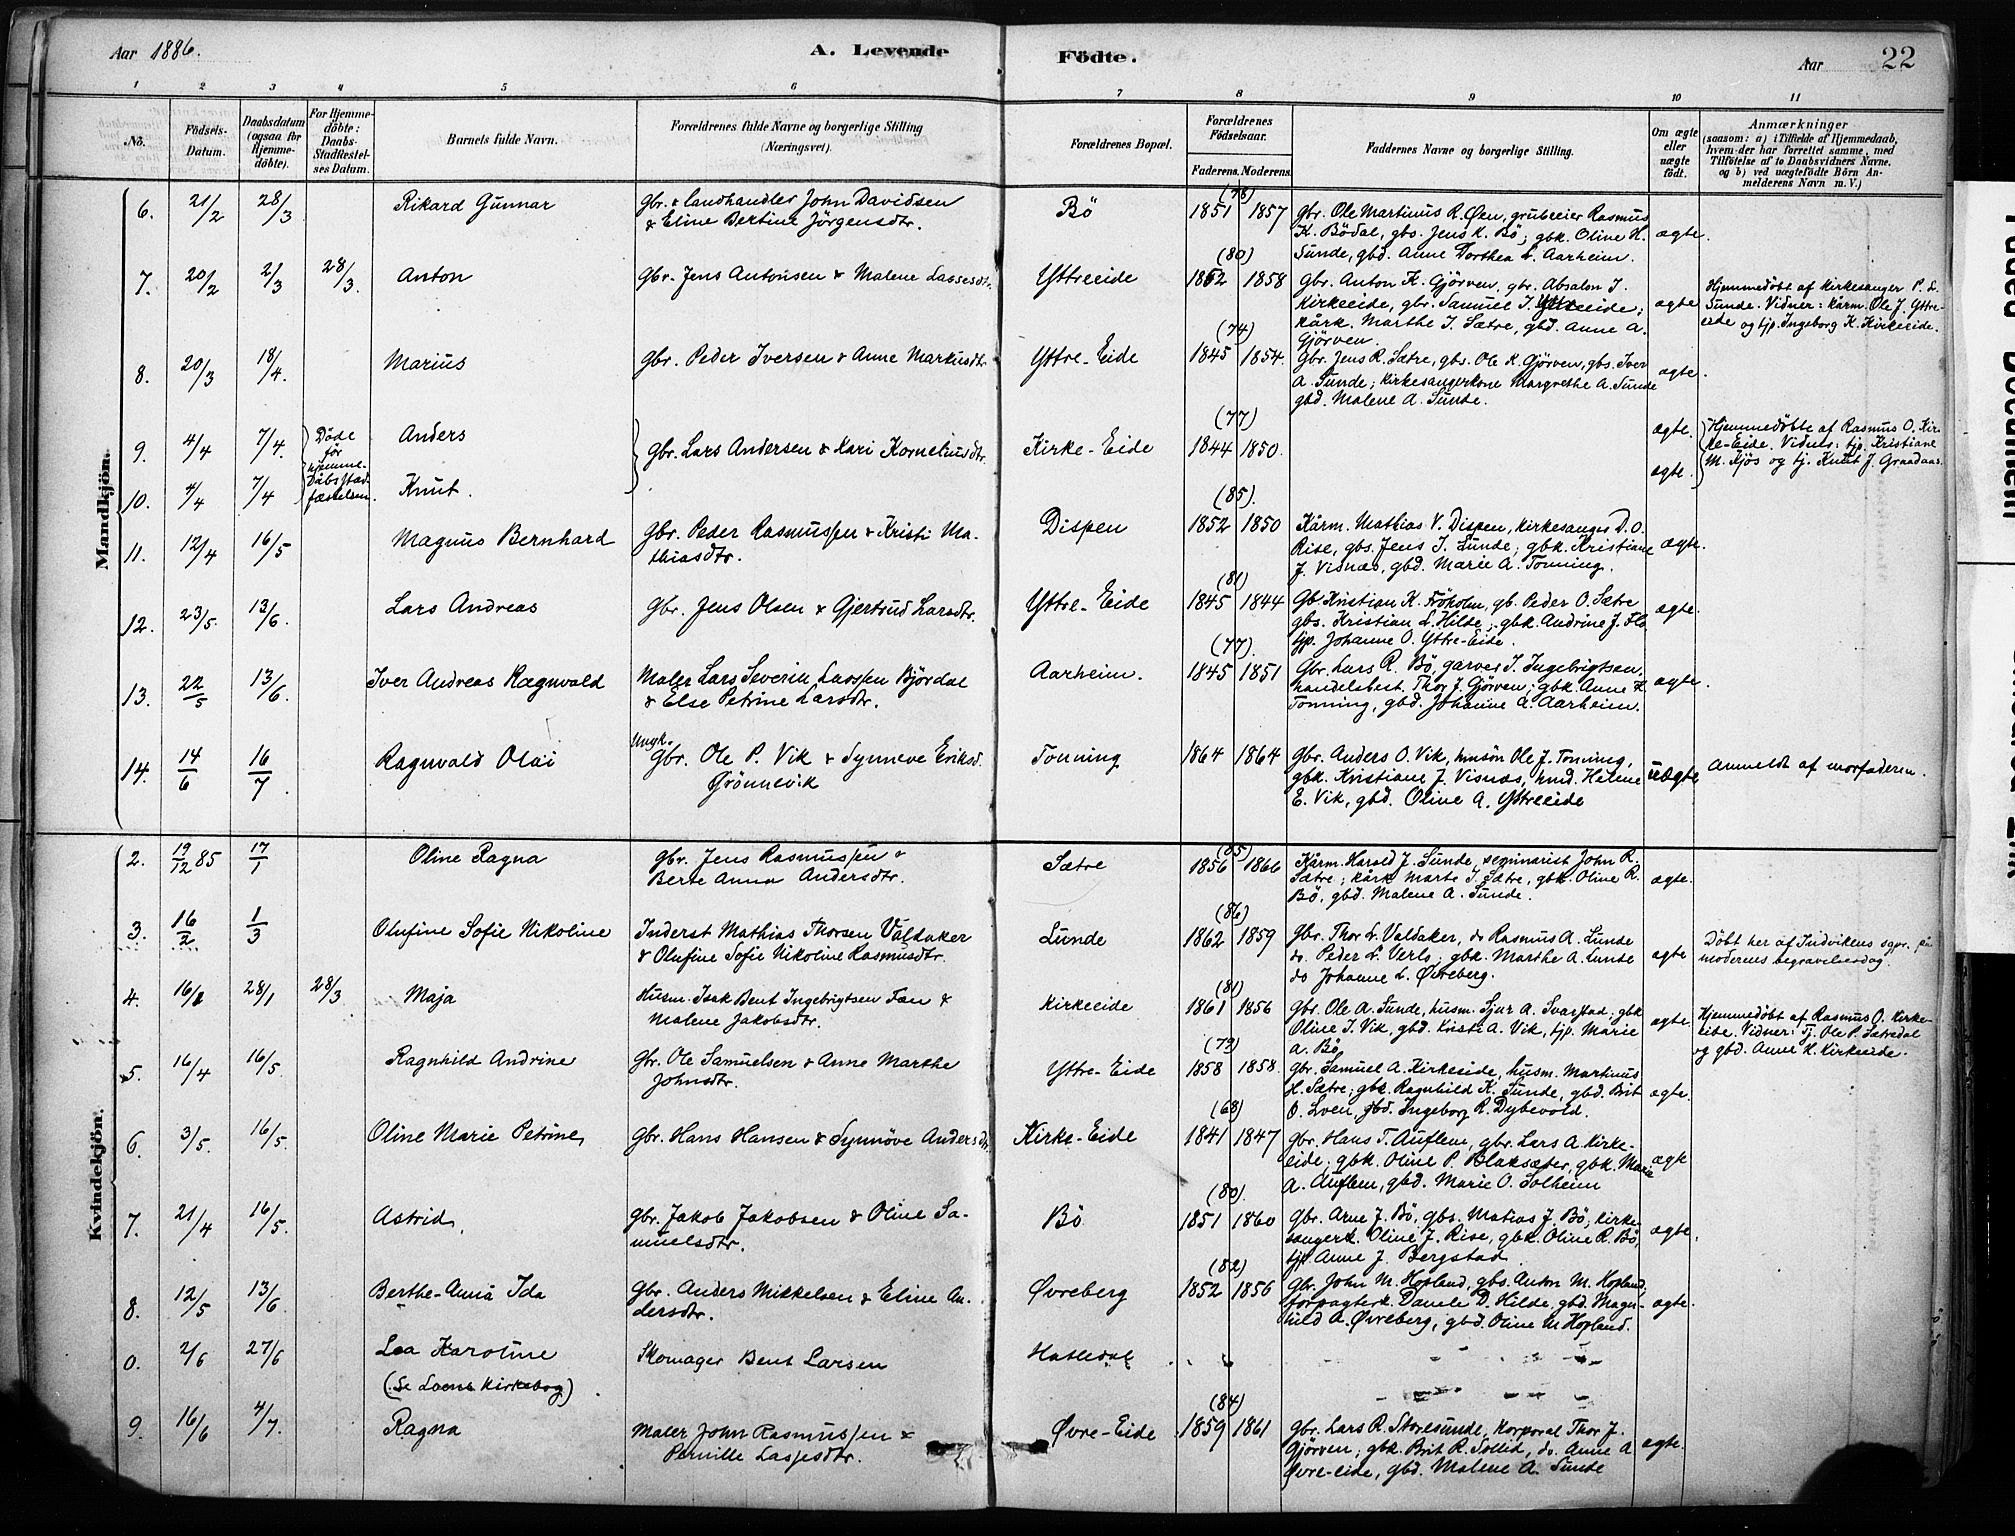 Aar 1886.
A. Levende
Födte.
Aar
22
1 2 3 4 5 6 7 8 9 10 11
No.
Födsels-
Datum.
Daabsdatum
(ogsaa för
Hjemme-
döbte).
For Hjemme-
döbte:
Daabs-
Stadfæstel-
ses Datum.
Barnets fulde Navn.
Forældrenes fulde Navne og borgerlige Stilling
(Næringsvei).
Forældrenes Bopæl.
Forældrenes
Födselsaar.
Faderens. Moderens.
Faddernes Navne og borgerlige Stilling.
Om ægte
eller
uægte
födt.
Anmærkninger
(saasom: a) i Tilfælde af Hjemmedaab,
hvem der har forrettet samme, med
Tilföielse af to Daabsvidners Navne,
og b) ved uægtefödte Börn An-
melderens Navn m. V.)
Mandkjön.
6. 21/2 28/3 Rikard Gunnar
gbr. & Landhandler John Davidsen
& Eline Bertine Jörgensdtr.
Bö
(78)
1851 1857
gbr. Ole Martinus R. Øen, grubeeier Rasmus
K. Bödal, gbs. Jens K. Bö; gbk. Oline H.
Sunde, gbd. Anne Dorthea L. Aarheim.
ægte.
7. 20/2 2/3 28/3. Anton
gbr. Jens Antonsen & Malene Lassesdtr.
Yttreeide
(80)
1852 1858
Gbr. Anton K. Gjörven, gbr. Absalon J.
Kirkeeide, gbr. Samuel J. Yttreeide;
kårk. Marthe J. Sætre, gbd. Anne A.
Gjörven.
ægte
Hjemmedöbt af Kirkesanger P. L.
Sunde. Vidner: kårm. Ole J. Yttre-
eide og tjp. Ingeborg K. Kirkeeide.
8. 20/3 18/4. Marius
gbr. Peder Iversen & Anne Markusdtr.
Yttre-Eide
(74)
1845 1854.
Gbr. Jens R. Sætre, gbs. Ole K. Gjörven, gbs. Iver
A. Sunde; kirkesangerkone Margrethe A. Sunde
gbd. Malene A. Sunde.
ægte.
9. 4/4 7/4. Anders
10. 4/4 7/4 Knut.
Döde
för
hjemme-
dåbsstad-
fæstelsen.
gbr. Lars Andersen & Kari Korneliusdtr.
Kirke-Eide
(77)
1844 1850.
ægte.
ægte.
Hjemmedöbte af Rasmus O. Kir-
ke-Eide. Vidner: tjp. Kristiane
M. Kjös og tj. Knut J. Graadaas.
11. 12/4 16/5 Magnus Bernhard
Gbr. Peder Rasmussen & Kristi Ma-
thiasdtr.
Dispen
(85).
1852 1850
Kårm. Mathias V. Dispen, kirkesanger D. O.
Rise, gbs. Jens J. Sunde; gbk. Kristiane
J. Visnæs, gbd. Marie A. Tonning.
ægte.
12. 23/5. 13/6. Lars Andreas
Gbr. Jens Olsen & Gjertrud Larsdtr.
Yttre-Eide
(81)
1845 1844
Gb. Kristian K. Fröholm, gb. Peder O. Sætre
gbs. Kristian L. Hilde; gbk. Andrine J. Flo
tjp. Johanne O. Yttre-Eide.
ægte.
13. 22/5 13/6. Iver Andreas Ragnvald
Maler Lars Severin Larssen Björdal
& Else Petrine Larsdtr.
Aarheim.
(77).
1845 1851
Gbr. Lars R. Bö, garver J. Ingebrigtsen,
handelsbest. Thor J. Gjörven; gbk. Anne K.
Tonning, gbd. Johanne A. Aarheim.
ægte.
14. 14/6 16/7. Ragnvald Olai
Ungk.
gbr. Ole P. Vik & Synneve Eriksd.
Grönnevik
Tonning
1864 1864
Gbr. Anders O. Vik, hmsön Ole J. Tonning,
gbk. Kristiane J. Visnæs, hmd. Helene
E. Vik, gbd. Oline A. Yttreeide
uægte
Anmeldt af morfaderen.
Kvindekjön.
2. 19/12 85 17/1 Oline Ragna
gbr. Jens Rasmussen &
Berte Anna Andersdtr.
Sætre
(85)
1856 1866
Kårm. Harald J. Sunde, seminarist John R.
Sætre; kårk. Marte J. Sætre, gbk. Oline R.
Bö, gbd. Malene A. Sunde.
ægte.
3. 16/2 1/3 Olufine Sofie Nikoline
Inderst Mathias Thorsen Valdaker
& Olufine Sofie Nikoline Rasmusdtr.
Lunde
(86)
1862 1859
Gbr. Thor L. Valdaker, do Rasmus A. Lunde
do. Peder L. Verlo; gbk. Marthe A. Lunde
do Johanne L. Øvreberg.
ægte
Döbt her af Indvikens sgpr. på
moderens begravelsesdag.
4. 16/1 28/1 28/3 Maja
Husm. Isak Bent Ingebrigtsen Fan &
Malene Jakobsdtr.
Kirkeeide
(81)
1861 1856
Gbr. Ole A. Sunde, husm. Sjur A. Svarstad, gbk
Oline J. Vik, gbd. Kristi A. Vik, tjp. Marie
A. Bö
ægte.
Hjemmedöbt af Rasmus O. Kirke-
eide. Vidner: Tj. Ole P. Sætredal
og gbd. Anne K. Kirkeeide.
5. 16/4 16/5. Ragnhild Andrine
Gbr. Ole Samuelsen & Anne Marthe
Johnsdtr.
Yttre-Eide
(79)
1858 1858.
gbr. Samuel A. Kirkeeide, husm. Martinus
H. Sætre; gbk. Ragnhild K. Sunde, gbd. Brit
O. Loen, gbd. Ingeborg R. Dybevold.
ægte.
6. 3/5. 16/5. Oline Marie Petrine
gbr. Hans Hansen & Synnöve Andersdtr.
Kirke-Eide
(68)
1841 1847
gbr. Hans T. Auflem, gbr. Lars A. Kirke-
eide; gbk. Oline P. Blaksæter, gbk. Marie
A. Auflem, gbd. Marie O. Solheim
ægte
7. 21/4 16/5. Astrid
gbr. Jakob Jakobsen & Oline Sa-
muelsdtr.
Bö
(80).
1851 1860
gbr. Arne J. Bö, gbs. Matias J. Bö; kirke-
sangerk. Oline J. Rise, gbk. Oline R. Bö,
tjp. Anne J. Bergstad.
ægte.
8. 12/5 13/6 Berthe-Anna Ida
Gbr. Anders Mikkelsen & Eline An-
dersdtr.
Øvreberg
(82)
1852 1856
Gbr. John M. Hopland, gbs. Anton M. Hopland,
forpagterk. Danele D. Hilde, gbd. Magn-
hild A. Øvreberg, gbd. Oline M. Hopland.
ægte.
0. 2/6 27/6 Lea Karoline
(Se Loens Kirkebog)
Skomager Bent Larsen
Hatledal
9. 16/6 4/7. Ragna
Maler John Rasmussen &
Pernille Lassesdtr.
Øvre-Eide
(84)
1859 1861
gbr. Lars R. Storesunde, Korporal Thor J.
Gjörven; gbk. Brit R. Sollid, do. Anne A.
Øvre-eide, gbd. Malene A. Sunde
ægte.